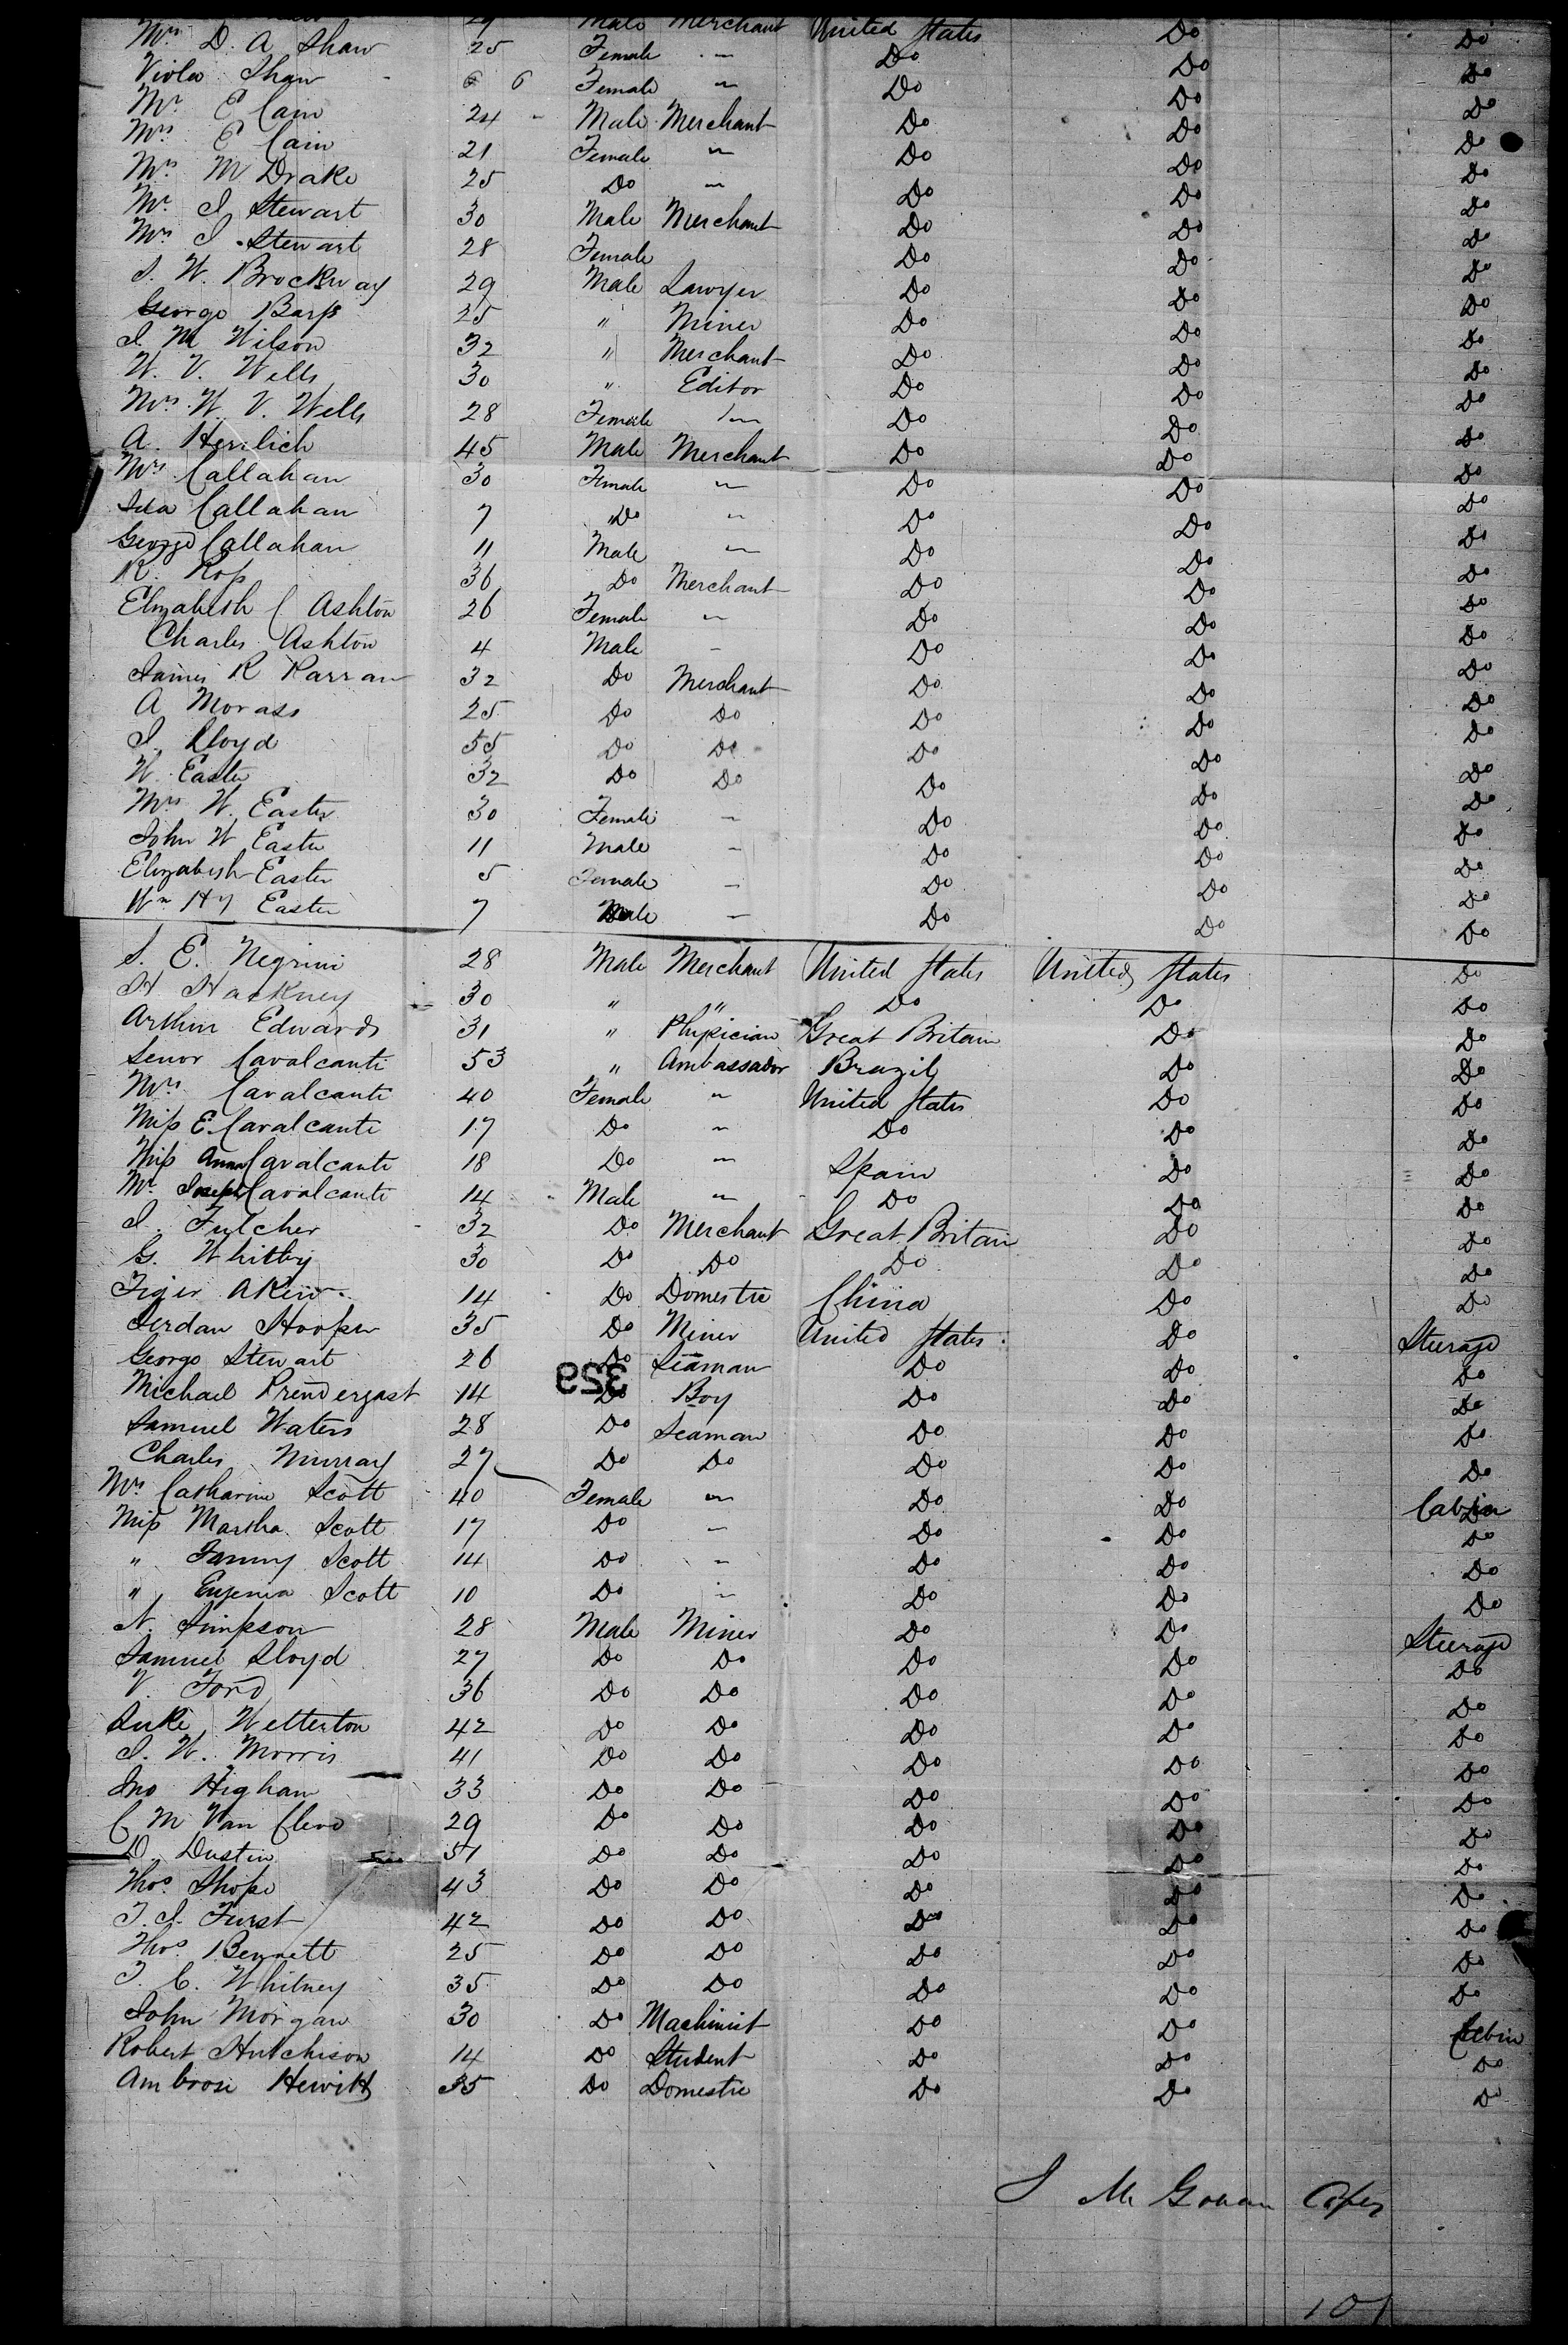 Male Merchant United States
Mrs D. A Shaw 25 Female - Do Do Do
Viola Shaw 6 Female - Do Do Do
Mr E Cain 24 Male Merchant Do Do Do
Mrs E Cain 21 Female - Do Do Do
Mrs M Drake 25 Do - Do Do Do
Mr J Stewart 30 Male Merchant Do Do Do
Mrs J Stewart 28 Female Do Do Do
J. W. Brockway 29 Male Lawyer Do Do Do
George Bass 25 " Miner Do Do Do
J. M Wilson 32 " Merchant Do Do Do
W. V. Wells 30 " Editor Do Do Do
Mrs W. V. Wells 28 Female - Do Do Do
A. Herrlich 45 Male Merchant Do Do Do
Mrs Callahan 30 Female - Do Do Do
Ida Callahan 7 "Do - Do Do Do
George Callahan 11 Male - Do Do Do
R. Ross 36 Do Merchant Do Do Do
Elizabeth C Ashton 26 Female - Do Do Do
Charles Ashton 4 Male - Do Do Do
James R 32 Do Merchant Do Do Do
A Morass 25 Do Do Do Do Do
J. Lloyd 55 Do Do Do Do Do
W. Easter 32 Do Do Do Do Do
Mrs W. Easter 30 Female - Do Do Do
John W Easter 11 Male - Do Do Do
Elizabeth Easter 5 Female - Do Do Do
Wm Hy Easter 7 Male - Do Do Do
S. E. Negrini 28 Male Merchant United States United States Do
H Hackney 30 " " Do Do Do
Arthur Edwards 31 " Physician Great Britain Do Do
Senor Cavalcanti 53 " Ambassador Brazil Do Do
Mrs Cavalcanti 40 Female - United States Do Do
Miss E. Cavalcanti 17 Do - Do Do Do
Miss Anna Cavalcanti 18 Do - Spain Do Do
Mr Joseph Cavalcanti 14 Male - Do Do Do
J. Fulcher 32 Do Merchant Great Britain Do Do
G. Whitby 30 Do Do Do Do Do
14 Do Domestic China Do Do
Jordan Hooper 35 Do Miner United States Do Steerage
George Stewart 26 Do Seaman Do Do Do
329
Michael Prendergast 14 Do Boy Do Do Do
Samuel Waters 28 Do Seaman Do Do Do
Charles Murray 27 Do Do Do Do Do
Mrs Catharine Scott 40 Female - Do Do Cabin
Miss Martha Scott 17 Do - Do Do Do
" Fanny Scott 14 Do - Do Do Do
" Eugenia Scott 10 Do - Do Do Do
N. Simpson 28 Male Miner Do Do Steerage
Samuel Lloyd 27 Do Do Do Do Do
V. Ford 36 Do Do Do Do Do
Luke Wetterton 42 Do Do Do Do Do
J. W. Morris 41 Do Do Do Do Do
Jno Higham 33 Do Do Do Do Do
C M Van Cleve 29 Do Do Do Do Do
D. Dustin 51 Do Do Do Do Do
Thos. Shope 43 Do Do Do Do Do
T. J. Furst 42 Do Do Do Do Do
Thos. Bennett 25 Do Do Do Do Do
T. C. Whitney 35 Do Do Do Do Do
John Morgan 30 Do Machinist Do Do Cabin
Robert Hutchison 14 Do Student Do Do Do
Ambrose Hewitt 35 Do Domestic Do Do Do
J Mc Gowan